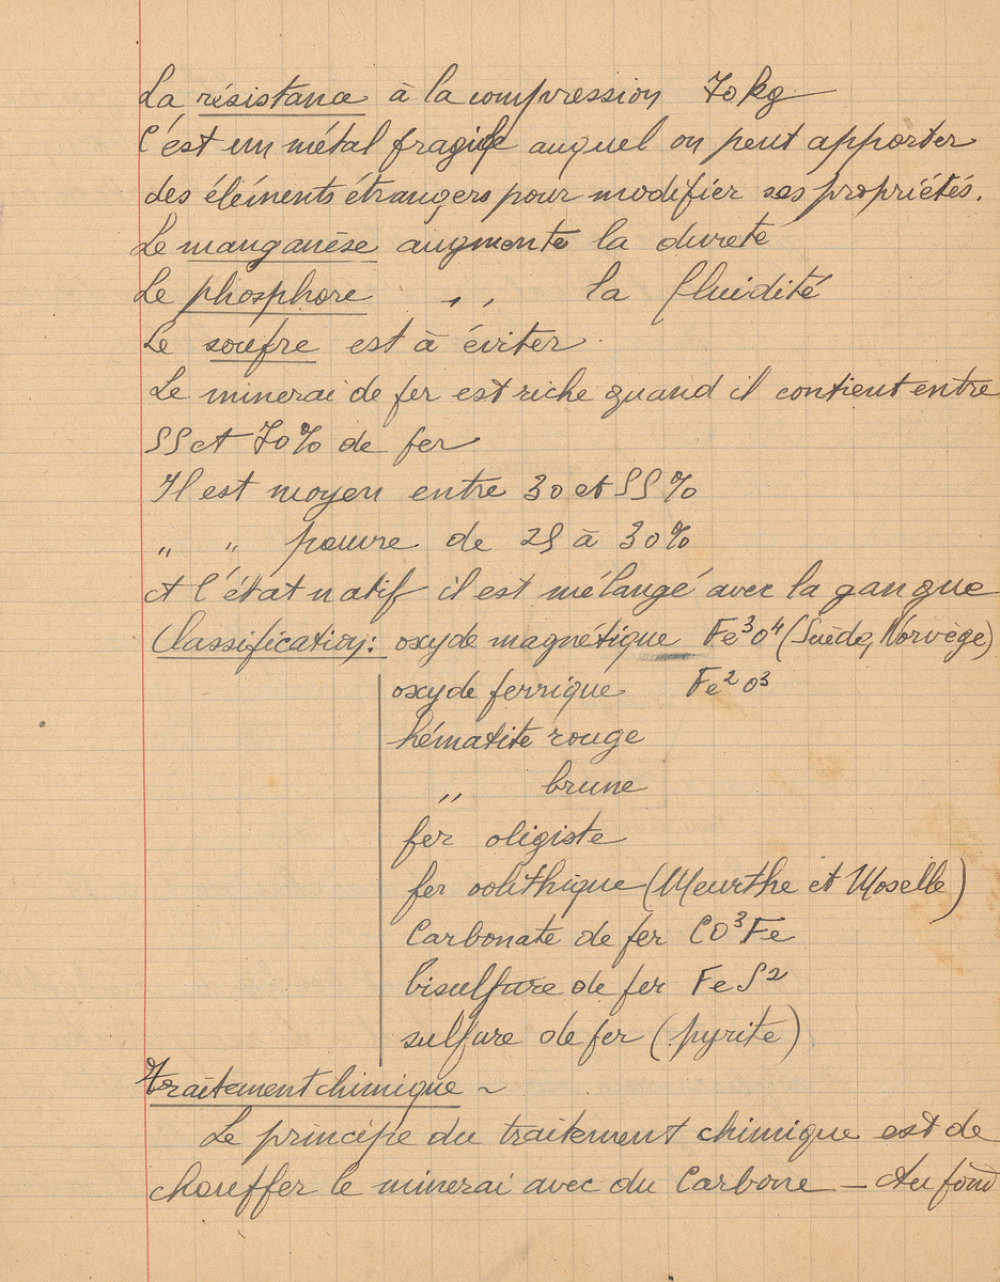 La résistance à la compression 70 kg
C'est un métal fragile auquel on peut apporter
des éléments étrangers pour modifier ses propriétés.
Le manganèse augmente la dureté
Le phosphore " la fluidité
Le soufre est à éviter
Le minerai de fer est riche quand il contient entre
55 et 70% de fer
Il est moyen entre 30 et 55%
" " pauvre de 25 à 30%
A l'état natif il est mélangé avec la gangue
Classification: oxyde magnétique Fe³O⁴ (Suède, Norvège)
oxyde ferrique Fe² O³
hématite rouge
" brune
fer oligiste
fer oolithique (Meurthe et Moselle)
Carbonate de fer CO³Fe
bisulfure de fer FeS²
sulfure de fer (pyrite)
Traitement chimique ~
Le principe du traitement chimique est de
chauffer le minerai avec du Carbone — Au fond